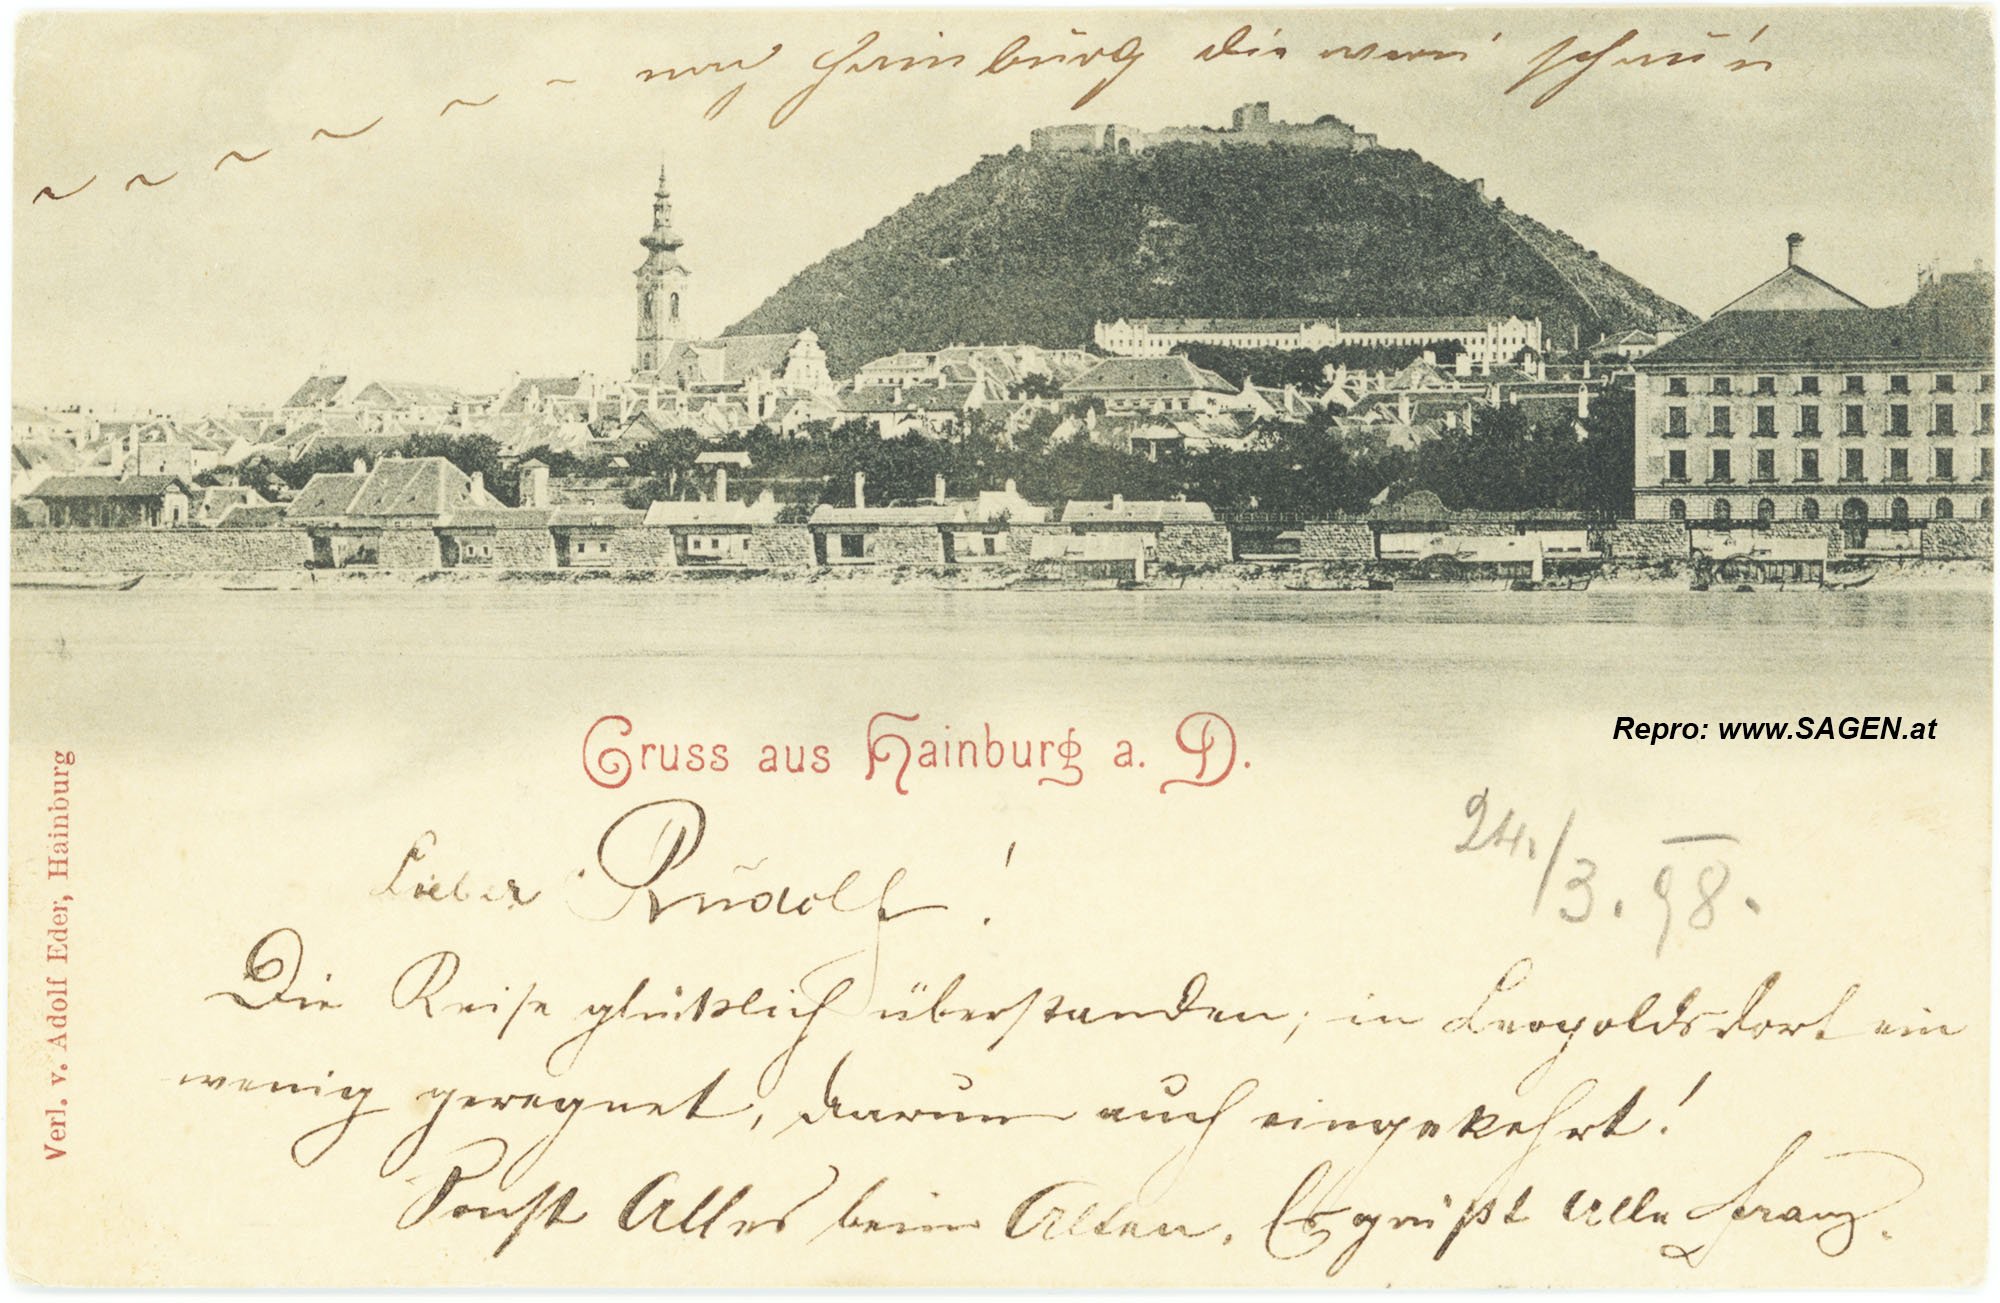 ~ ~ ~ ~ ~ ~ nach Hainburg die schau'n
Gruss aus Hainburg a. D.
Repro: www.SAGEN.at
Verl. v. Adolf Eder, Hainburg
24./3. 98.
Lieber Rudolf!
Die Reise glücklich überstanden, in Leopoldsdorf ein
wenig geregnet, darum auch eingekehrt!
Sonst Alles beim Alten. Es grüßt Alle Franz.